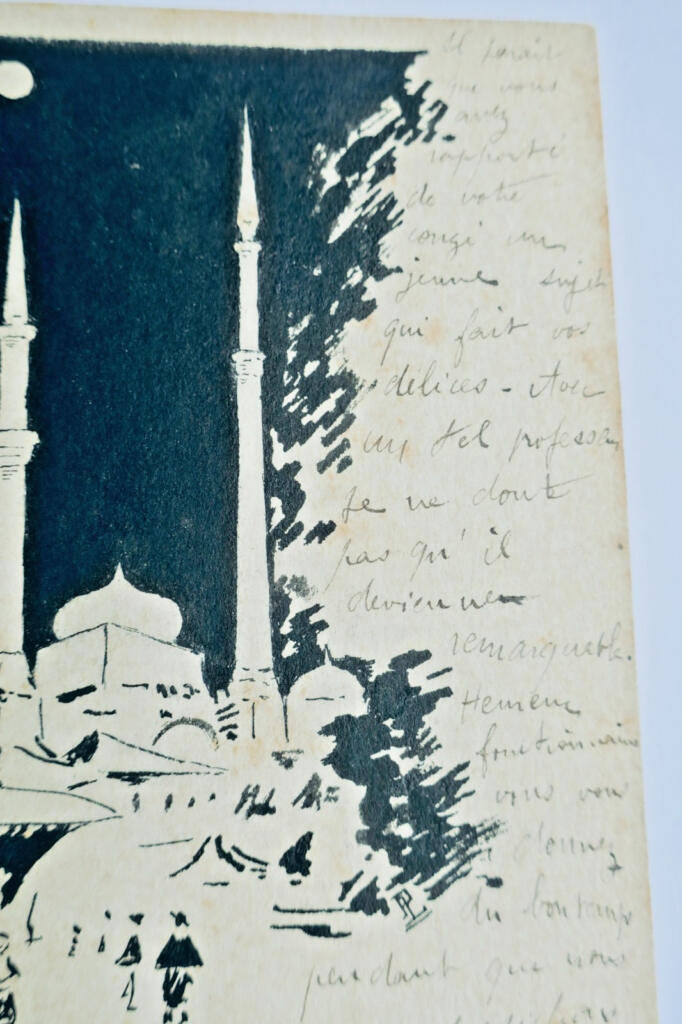 Il parait
que vous
avez
rapporté
de votre
congé un
jeune sujet
qui fait vos
délices - Avec
un tel professeur
je ne doute
pas qu'il
devienne
remarquable.
fonctionnaire
vous vous
donnez
du bon temps
pendant que nous